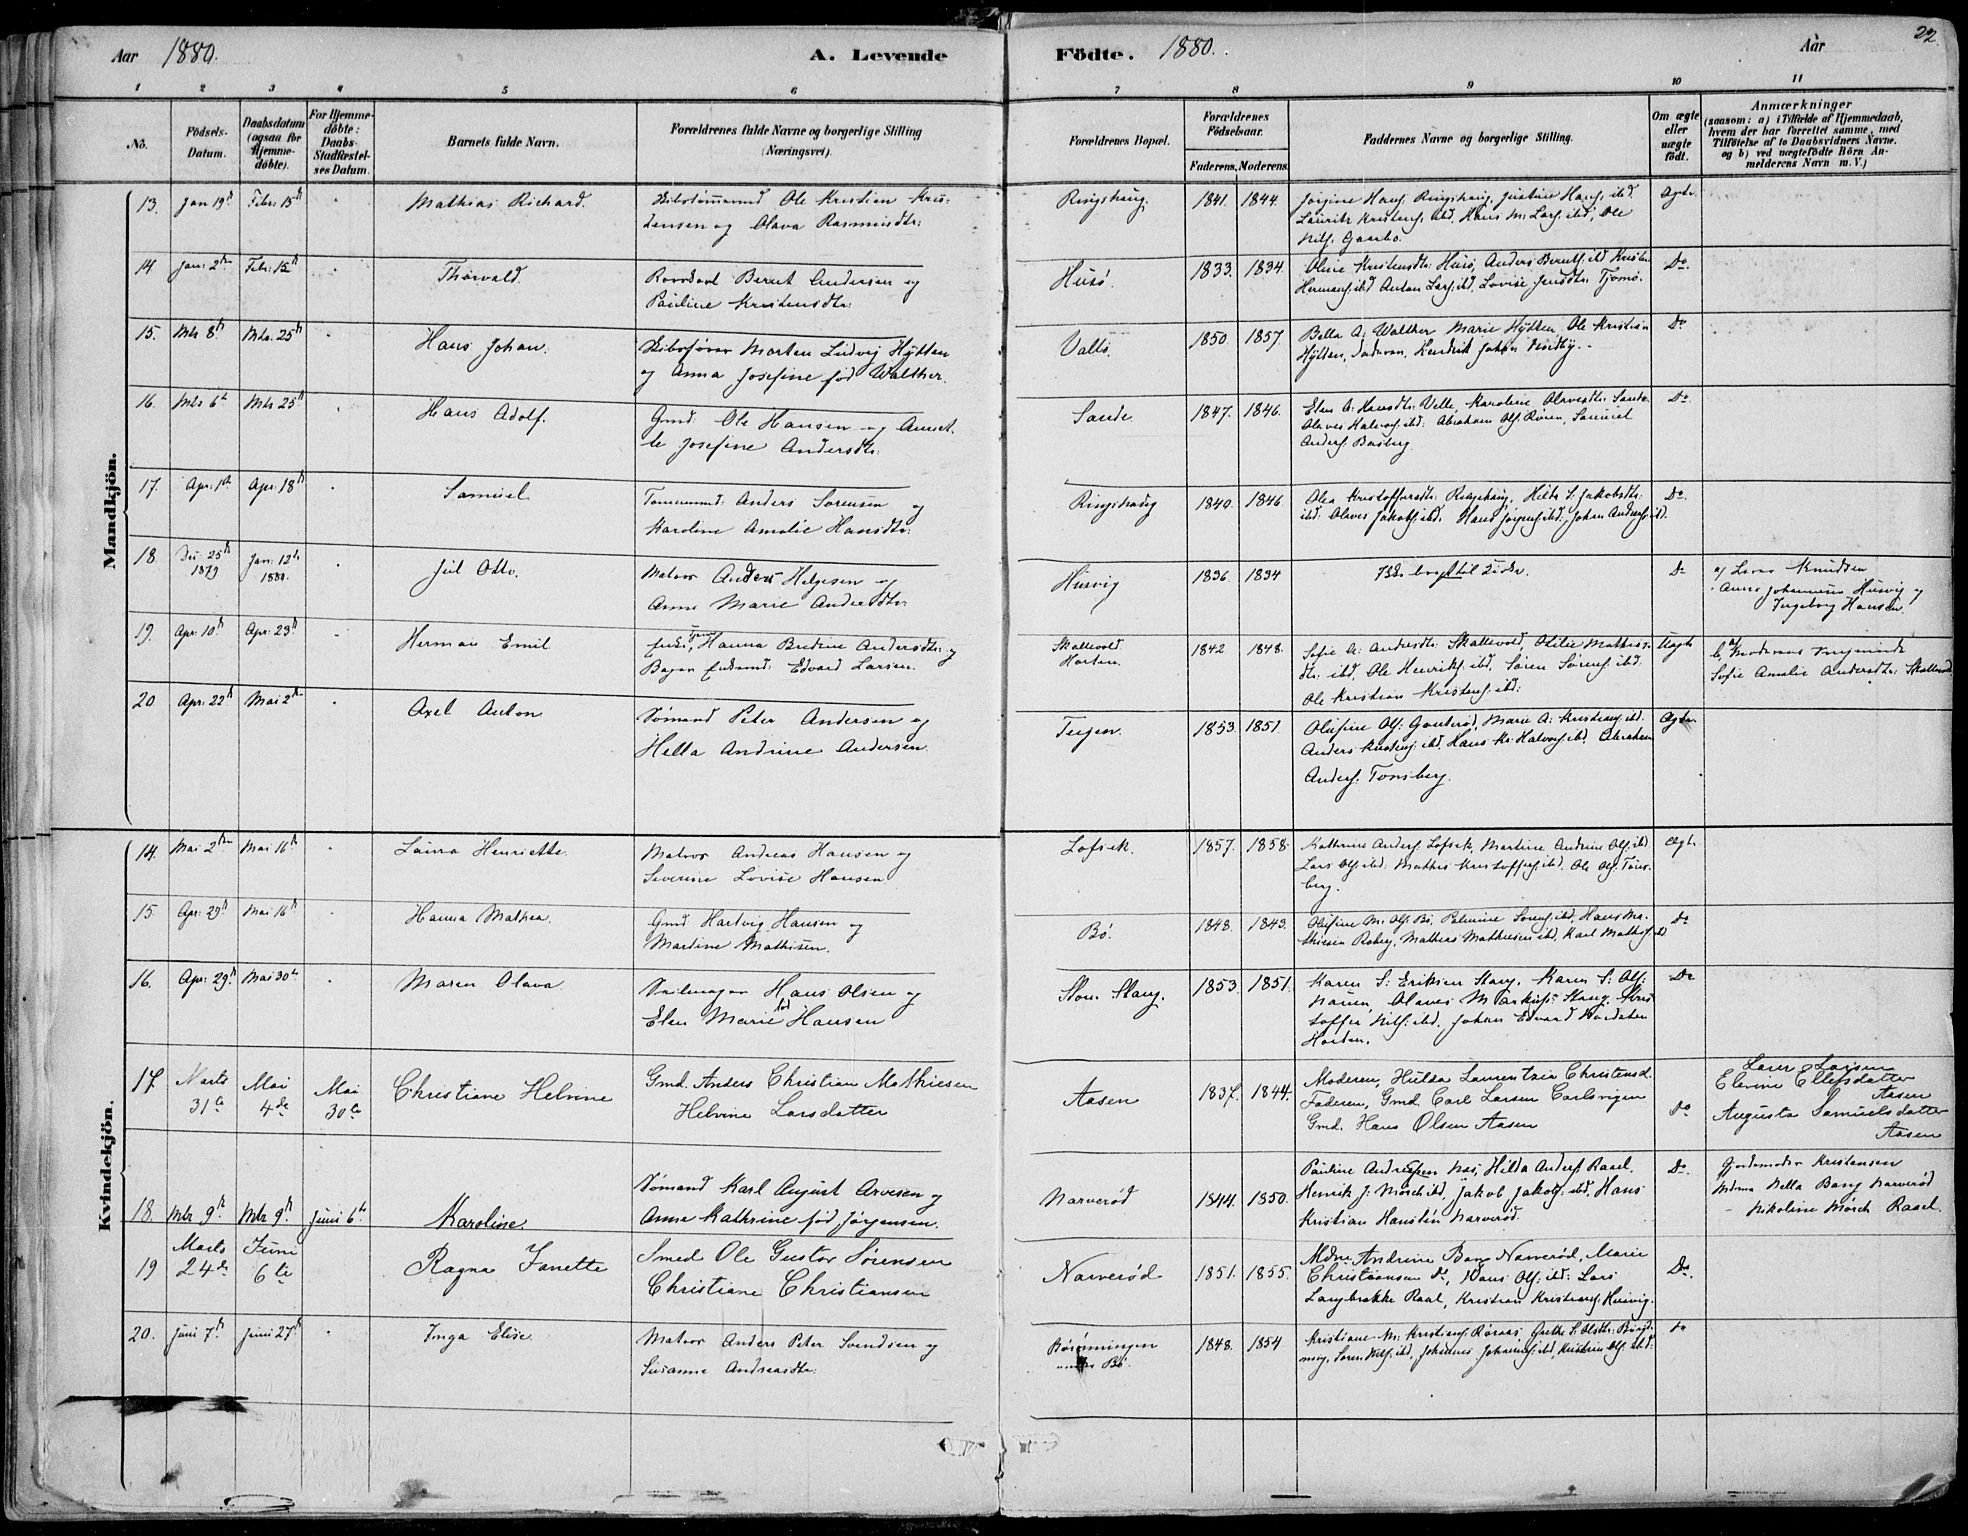 Aar 1880. A. Levende Födte. 1880. Aar 22.
1 2 3 4 5 6 7 8 9 10 11
Nô. Födsels-Datum. Daabsdatum (ogsaa för Hjemmedöbte). For Hjemmedöbte: Daabs-Stadfæstelses Datum. Barnets fulde Navn. Forældrenes fulde Navne og borgerlige Stilling (Næringsvei). Forældrenes Bopæl. Forældrenes Födselsaar. Faderens. Moderens. Faddernes Navne og borgerlige Stilling. Om ægte eller uægte födt. Anmærkninger (saasom: a) i Tilfælde af Hjemmedaab, hvem der har forrettet samme, med Tilföielse af to Daabsvidners Navne. og b) ved uægtefödte Börn Anmelderens Navn m. V.)
Mandkjön.
13. Jan 19d Febr. 15d Mathias Richard. Skibstømmermd Ole Kristian Kristensen og Olava Rasmusdtr: Ringshaug. 1841. 1844. Jørgine Hans. Ringshaug, Justine Hans. ibd.
Lauritz Kristens. ibd. Hans M. Lars. ibd, Ole
Nils. Gaarbo.
14 Jan: 2den Febr: 15d Thorvald. Berut Andersen og
Pauline Kristensdtr: Husø. 1833. 1834. Oline Kristensdtr: Husø, Anders Beruts. ibd
Hermans. ibd Anton Lars. ibd, Lovise Jensdtr: Tjømø. Do.
15. Mts 8d Mts. 25d Hans Johan. Skibsfører Morten Ludvig Hytten
og Anna Josefine fød Walther. Vallø. 1850. 1857 Bella A: Walther Marie Hytten, Ole Kristian
Hytten, Faderen, Hendrik Johan Do
16. Mts 6t Mts 25d Hans Adolf. Gmd Ole Hansen og Annette Josefine Andersdtr: Sande. 1847. 1846. Elen A: Hansdtr: Velle, Karoline Olavesdtr: Sande
Olaves Halvors. ibd: Abraham Ols. Røren, Samuel
Anders. Basberg Do.
17. Apr: 1ste Apr. 18d Samuel. Tømmermd: Anders Sørensen og
Karoline Amalie Hansdtr: Ringshaug 1840. 1846. Olea Kristoffersdtr: Ringshaug, S. Jakobsdtr:
ibd. Olaves Jakobs. ibd. Hans Jørgens. ibd. Johan Anders. ibd. Do.
18. Dec: 25d 1879 Jan: 12te 1880. Juel Otto. Matros Anders Helgesen og
Anne Marie Andersdtr: Husvig 1836. 1834 Ikke bragt til Kirke. Do a) Knudsen
Anne Johannesen Husvig og
Ingeborg Hansen.
19. Apr: 10d Apr: 23d Herman Emil Hanna Bredine Andersdtr: og
Edvard Larsen. Skallevold
Horten. 1842 1848. Sofie A: Andersdtr: Skallevold, Otilie Mathisdtr: ibd, Ole Henriks. ibd, Søren Sørens. ibd.
Ole Kristian Kristens. ibd: Uægte b) Moderens
Sofie Amalie Andersdtr: Skallevold
20 Apr: 22d Mai 2d Axel Anton Sømand Peter Andersen og
Hella Andrine Andersen. Teigen. 1853. 1851. Olefine Ols. Gauterød, Marie A. Kristians. ibd.
Anders Kristens. ibd, Hans Kr. Halvors. ibd. Abraham
Anders. Tønsberg. Ægte
Kvindekjön.
14. Mai 2den Mai 16d Laura Henriette. Matros Andreas Hansen og
Severine Lovise Hansen. Lofsek. 1857. 1858. Kathrine Anders. Lofsek, Martine Andrine Ols. ibd.
Lars Ols. ibd: Mathis Kristoffers. ibd, Ole Ols. Tønsberg. Ægte
15. Apr: 29d Mai 16d Hanna Mathea. Gmd Hartvig Hansen og
Martine Mathisen. Bø. 1848. 1843. Olefine M. Ols. Bø, Sørens. ibd, Hans Mathiesen Roberg, Mathis Mathiesen ibd, Karl Mathis. ibd Do
16. Apr: 29d Mai 30te Maren Olava Seilmager Hans Olsen og
Elen Marie fød Hansen Stang. 1853. 1851. Karen S: Eriksen Stang, Karen S: Ols:
Olaves Stang. Kristoffer Nils. ibd, Johan Edvard
Horten. Do
17 Marts 31te Mai 4de Mai 30te Christiane Helvine Gmd. Anders Christian Mathiesen
Helvine Larsdatter Aasen 1837. 1844. Moderen, Hulda Laurentzia Christensd.
Faderen, Gmd. Carl Larsen Carlsvigen
Gmd. Hans Olsen Aasen Do Larsen
Elevine Ellefsdatter
Aasen
Augusta Samuelsdatter
Aasen
18. Mts 9d Mts 9d Juni 6te Karoline. Sømand Karl August Arvesen og
Anna Kathrine fød Jørgensen. Narverød 1844. 1850. Pauline Andersen Næs, Hilda Anders. Raael.
Henrik J: Mørch ibd, Jakob Jakobs. ibd, Hans
Kristian Hansen Narverød. Do. Gjordemoder Kristensen
Mdme Nella Bang Narverød
Nikoline Mørch Raael.
19 Marts 24de Juni 6te Ragna Janette Smed Ole Gustav Sørensen
Christiane Christiansen Narverød 1851. 1855. Mdme Andrine Bang Narverød, Marie
Christiansen Do, Hans Ols. ibd: Lars
Langbrække Raael, Kristian Kristians. Husvig. Do.
20. Juni 7d Juni 27d Inga Elise. Matros Anders Peter Svendsen og
Susanne Andreasdtr: under Bø. 1848. 1854 Kristiane M: Kristians. Røraas, Grethe S: Olsdtr:
Søren Nils. ibd, Johannes Johannes. ibd, Kristian Ols. ibd: do